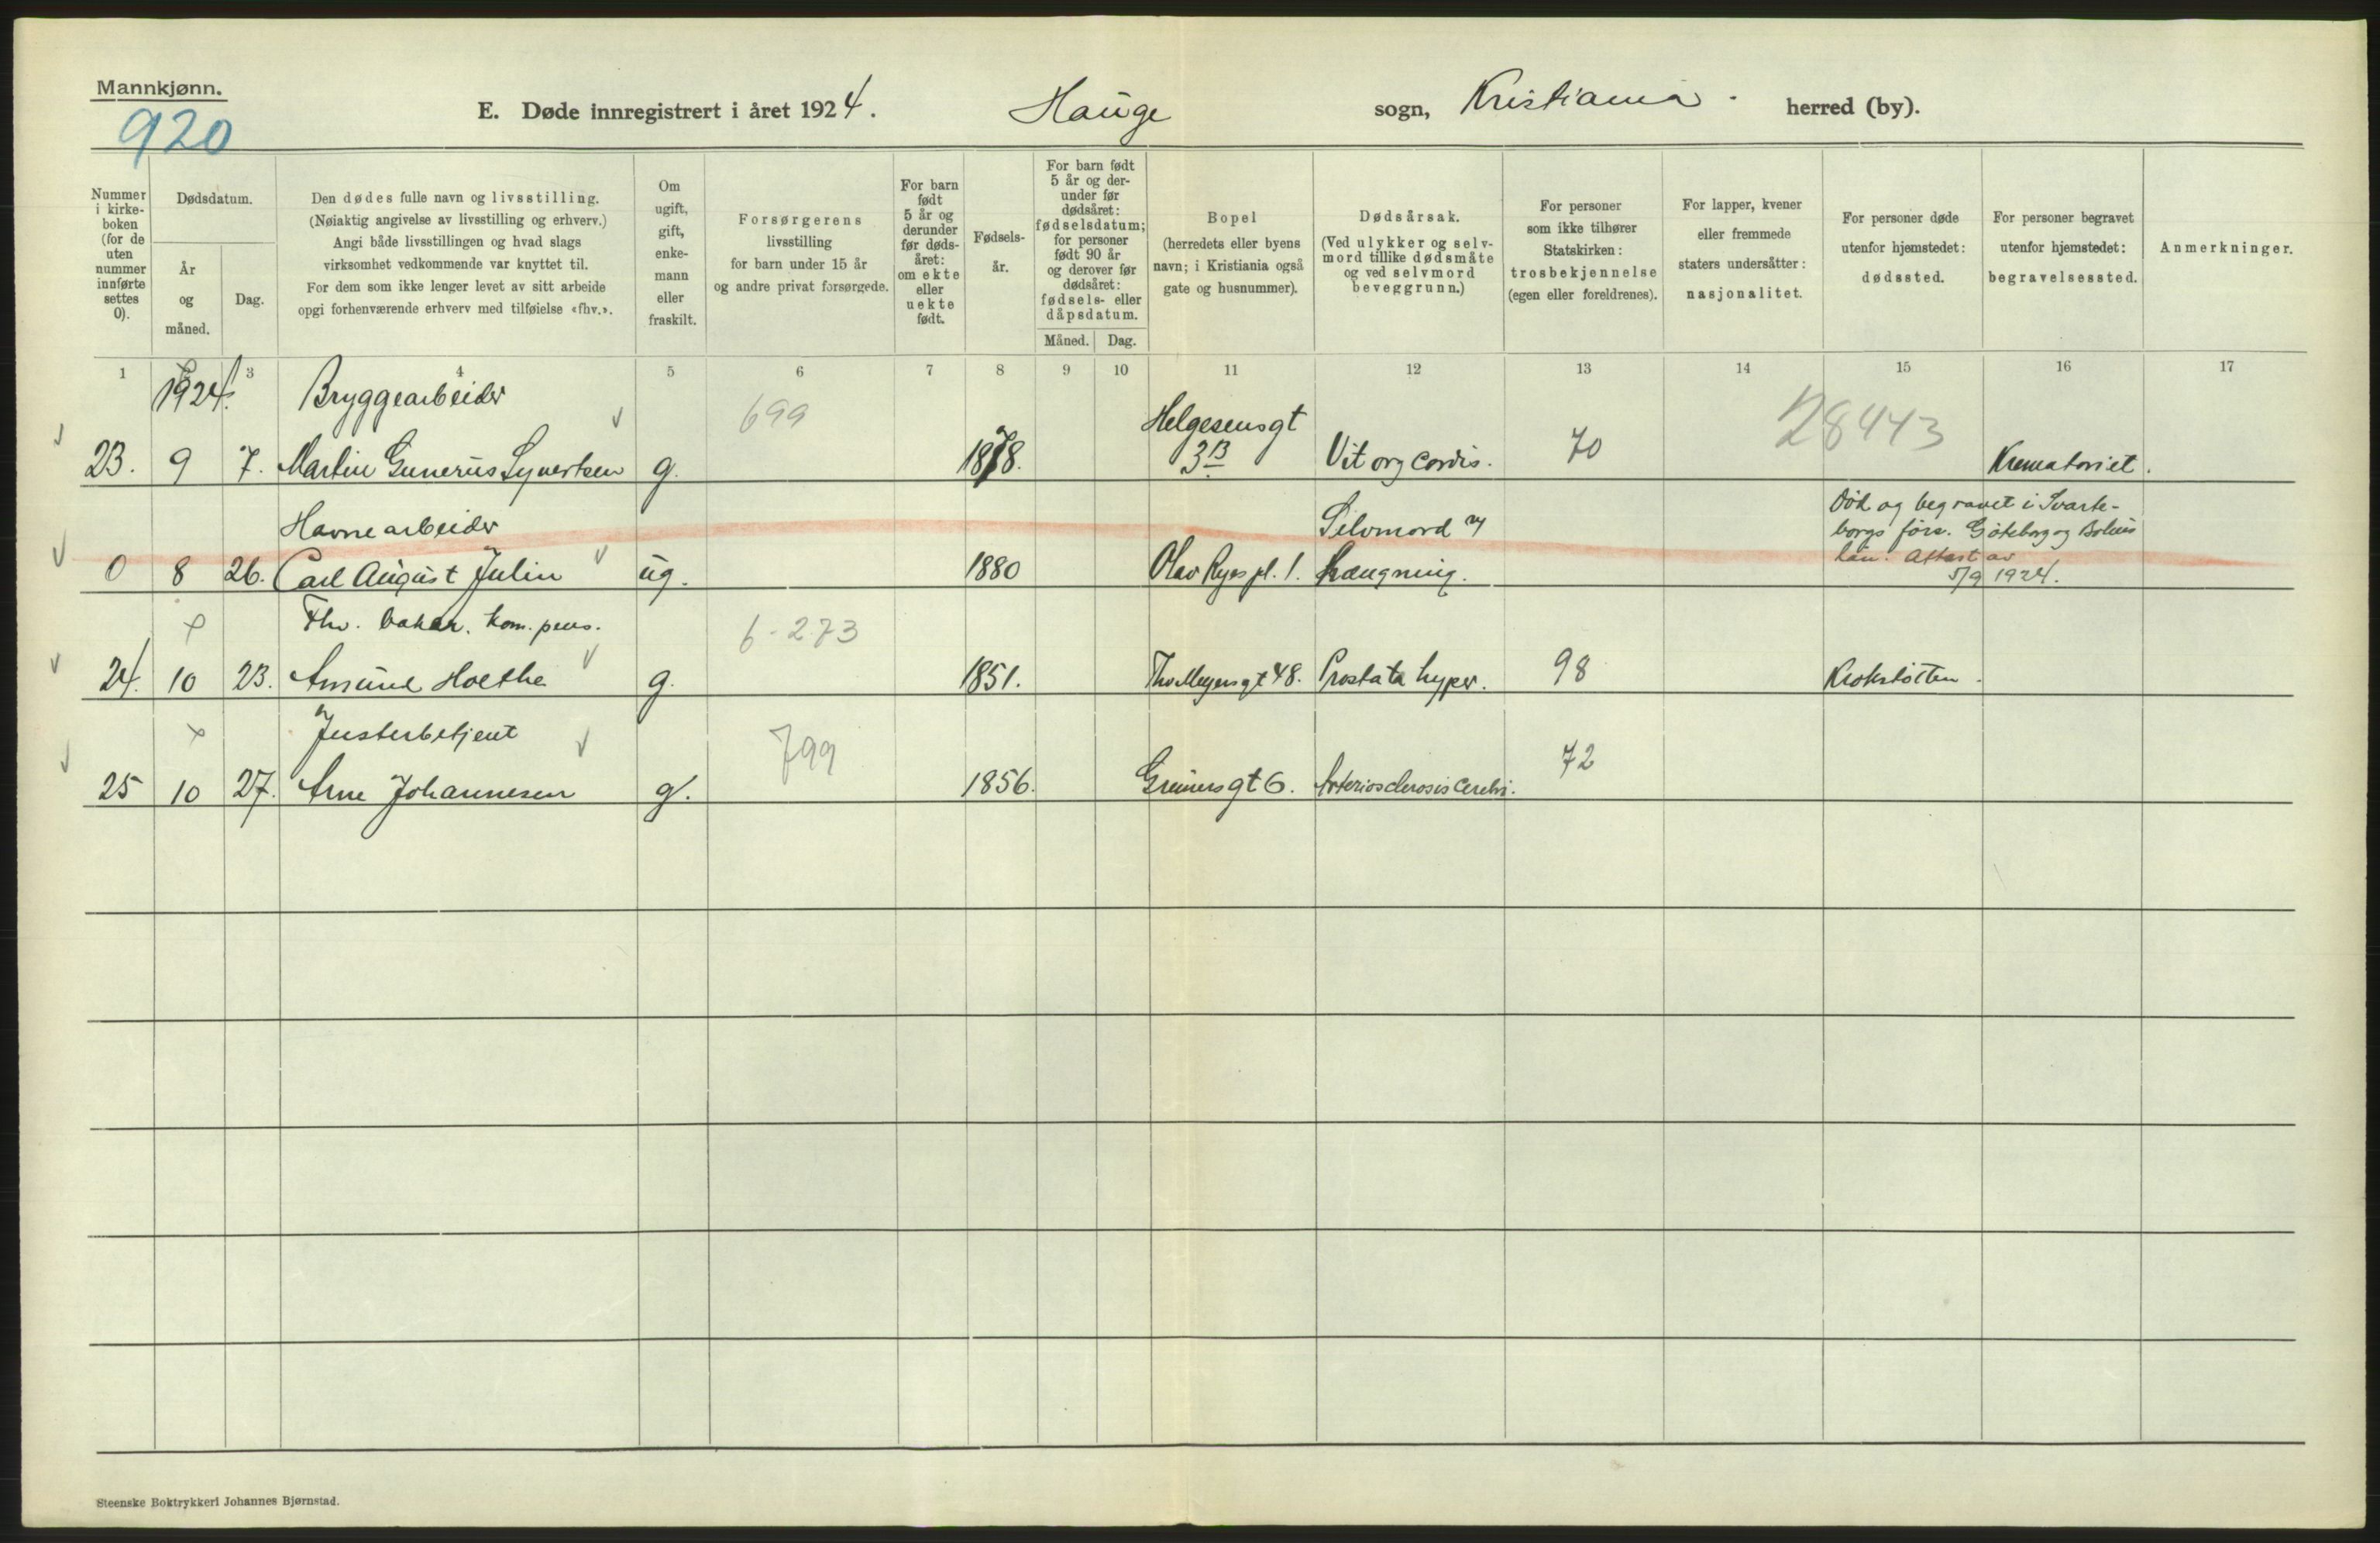 Mannkjønn.
920
E. Døde innregistrert i året 1924. Hauge sogn, Kristiania herred (by).
Nummer i kirke-boken (for de uten nummer innførte settes 0).
Dødsdatum.
År og måned.
Dag.
Den dødes fulle navn og livsstilling.
(Nøiaktig angivelse av livsstilling og erhverv.)
Angi både livsstillingen og hvad slags
virksomhet vedkommende var knyttet til.
For dem som ikke lenger levet av sitt arbeide
opgi forhenværende erhverv med tilføielse «fhv.».
Om ugift, gift, enke-mann eller fraskilt.
Forsørgerens
livsstilling
for barn under 15 år
og andre privat forsørgede.
For barn født 5 år og derunder før døds-året: om ekte eller uekte født.
Fødsels-år.
For barn født 5 år og der-under før dødsåret: fødselsdatum; for personer født 90 år og derover før dødsåret: fødsels- eller dåpsdatum.
Måned. Dag.
Bopel
(herredets eller byens
navn; i Kristiania også
gate og husnummer).
Dødsårsak.
(Ved ulykker og selv-
mord tillike dødsmåte
og ved selvmord
beveggrunn.)
For personer
som ikke tilhører
Statskirken:
trosbekjennelse
(egen eller foreldrenes).
For lapper, kvener
eller fremmede
staters undersåtter:
nasjonalitet.
For personer døde
utenfor hjemstedet:
dødssted.
For personer begravet
utenfor hjemstedet:
begravelsessted.
Anmerkninger.
1 2 3 4 5 6 7 8 9 10 11 12 13 14 15 16 17
1924. Bryggearbeider 699 Helgesensgt 28443
23. 9 7. Martin Gunerius Syvertsen g. 1878. 3B Vit org cordis. 70 Krematoriet.
Havnearbeider Selvmord v/ Död og begravet i Svarte-
borgs förs. Göteborg og Bohus
län. Attest av
0 8 26. Carl August Julin ug. 1880 Olav Ryes pl. 1. hængning. 5/9 1924.
Fhv. baker. kom. pens. 6-273
24. 10 23. Amund Holthe g. 1851. Thv Meyersgt 48. Prostata hyper. 98 Krokstötten.
Justerbetjent 799
25 10 27. Arne Johannesen g. 1856. Greinersgt 6. Arteriosclerosis Cerebri. 72
Steenske Boktrykkeri Johannes Bjørnstad.